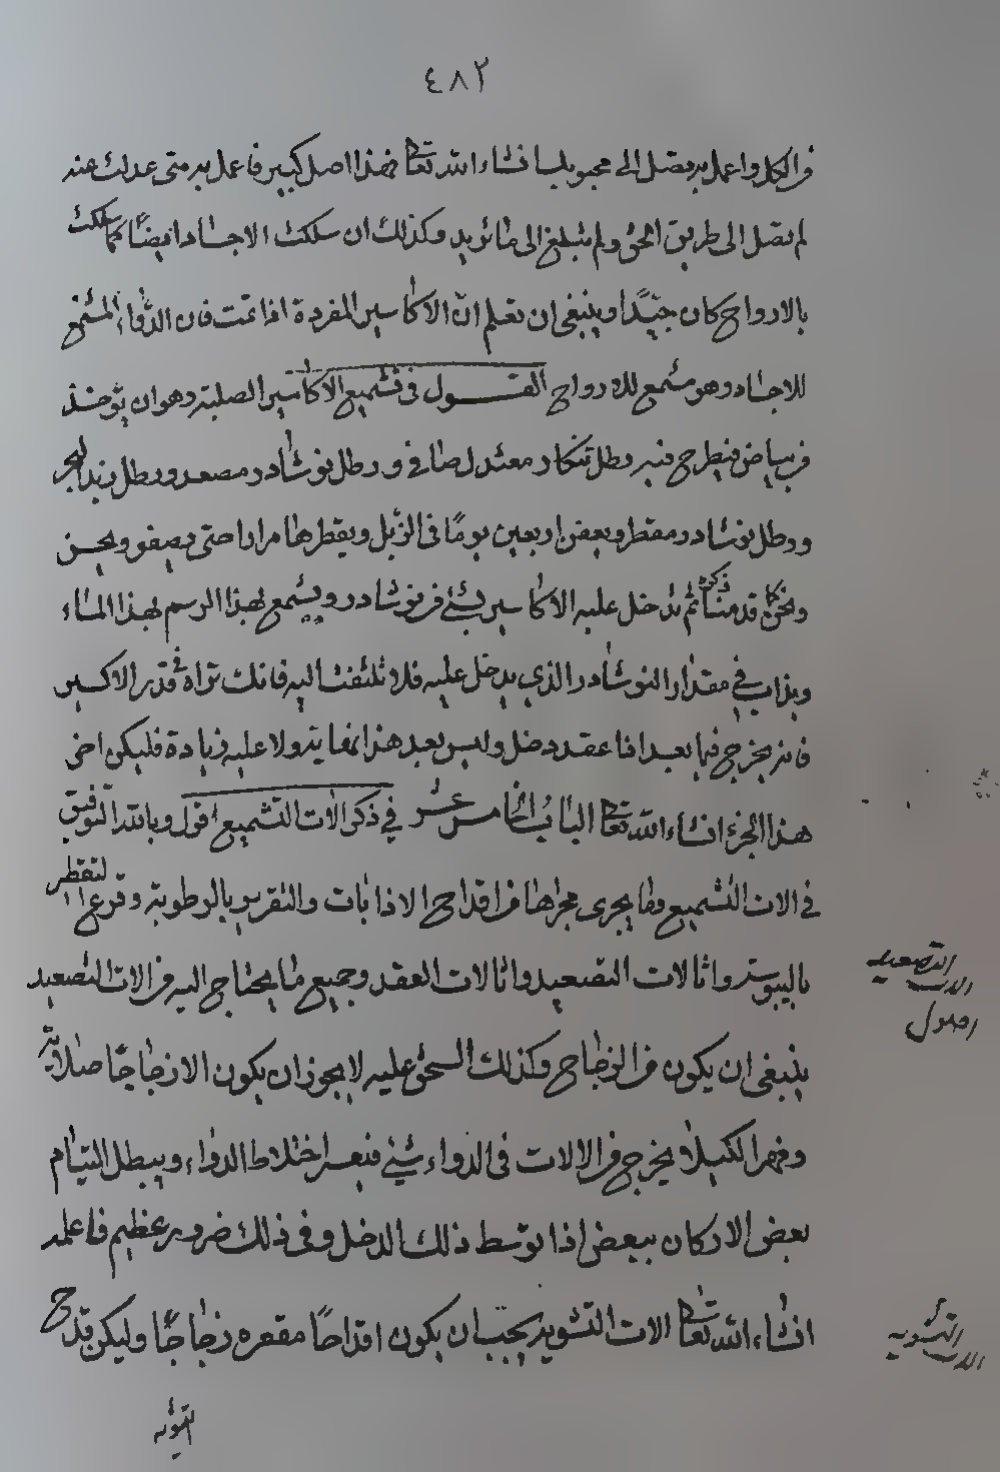 ٤٨٢
من الكل واعمل به تصل الى محبوبك انشاء الله تعالى فهذا اصل كبير فاعمل به متى عدلت عنه
لم تصل الى طريق الحق ولم تبلغ الى ما تريد وكذلك ان سلكت الاجساد ايضًا كما سلكت
بالارواح كان جيّدًا وينبغى ان تعلم انّ الاكاسير المفردة اذا تمت فان الدّواء المشمع
للاجساد وهو مشمع للارواح القول فى تشميع الاكاسير الصلبة وهو ان يؤخذ
من بياض فيطرح فيه رطل تنكار معتدل صافى ورطل نوشادر مصعد ورطل زبد البحر
ورطل نوشادر مقطر ويعفن اربعين يومًا فى الزّبل ويقطرها مرارا حتى يصفو ويحسن
ونحن كما قد منا ذكره ثم تدخل عليه الاكاسير بشئ من نوشادر ويشمع بهذا الرسم بهذا الماء
ويذاب فى مقدار النوشادر الذي يدخل عليه فلا تلتفت اليه فانك تراه فى قدر الاكسير
فانه يخرج فيما بعد اذا عقد دخل وليس بعد هذا نهاية ولا عليه زيادة فليكن اخر
هذا الجزء انشاء الله تعالى الباب الخامس عشر فى ذكر الات التشميع اقول وبالله التوفيق
فى الات التشميع وما يجرى مجراها من اقداح الاذابات والتقرير بالرطوبة وقرع التقطير
باليبوسة واثالات التصعيد واثالات العقد وجميع ما يحتاج اليه من الات التصعيد
ينبغى ان يكون من الزجاج وكذلك السحق عليه لا يجوز ان يكون الا زجاجًا صلاية
وفهر الكيلا يخرج من الالات فى الدواء شئ فيعسر اختلاط الدواء ويبطل التيام
بعض الاركان ببعض اذا توسط ذلك الدخل وفى ذلك ضرورة عظيم فاعلمه
انشاء الله تعالى الات التشويه يجب ان يكون اقداحًا مقعره زجاجًا وليكن قدح
التصعيد
الات
اصول
التشويه
الات